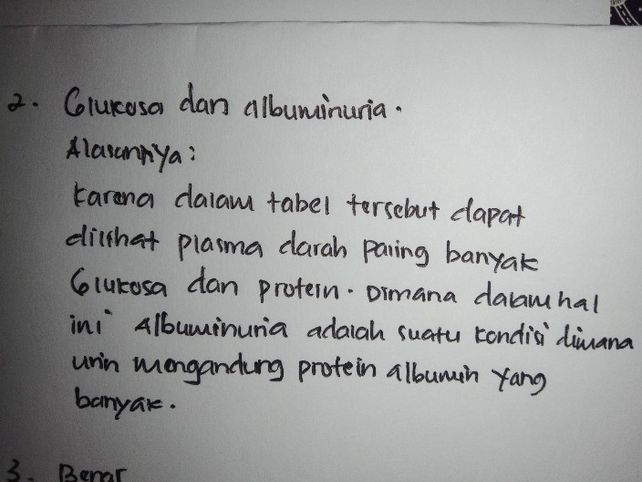 2. Glukosa dan albuminuria.
Alasannya:
Karena dalam tabel tersebut dapat
dilihat plasma darah paling banyak
Glukosa dan protein. Dimana dalam hal
ini Albuminuria adalah suatu kondisi dimana
urin mengandung protein albumin yang
banyak.
3. Benar